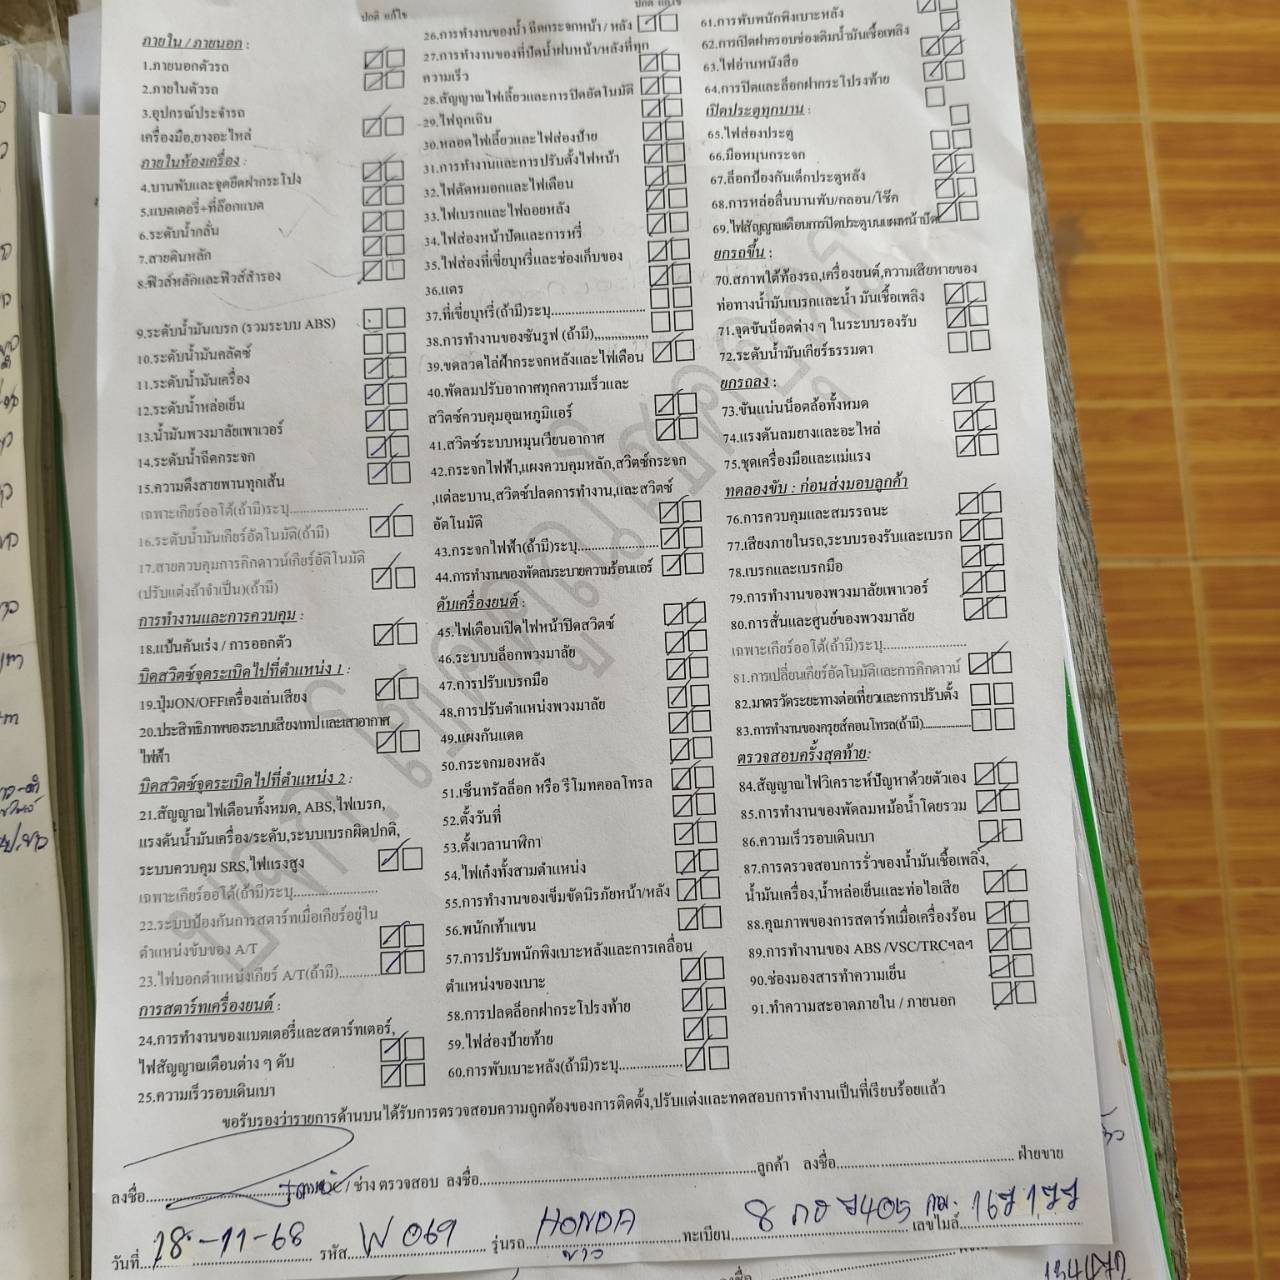 ปกติ แก้ไข
ภายใน / ภายนอก :
1.ภายนอกตัวรถ
2.ภายในตัวรถ
3.อุปกรณ์ประจำรถ
เครื่องมือ,ยางอะไหล่
ภายในห้องเครื่อง :
4.บานพับและจุดยึดฝากระโปง
5.แบตเตอรี่+ที่ล๊อกแบต
6.ระดับน้ำกลั่น
7.สายดินหลัก
8.ฟิวส์หลักและฟิวส์สำรอง
9.ระดับน้ำมันเบรก (รวมระบบ ABS)
10.ระดับน้ำมันคลัตช์
11.ระดับน้ำมันเครื่อง
12.ระดับน้ำหล่อเย็น
13.น้ำมันพวงมาลัยเพาเวอร์
14.ระดับน้ำฉีดกระจก
15.ความตึงสายพานทุกเส้น
เฉพาะเกียร์ออโต้(ถ้ามี)ระบุ....................
16.ระดับน้ำมันเกียร์อัตโนมัติ(ถ้ามี)
17.สายควบคุมการคิกดาวน์เกียร์อัติโนมัติ
(ปรับแต่งถ้าจำเป็น)(ถ้ามี)
การทำงานและการควบคุม :
18.แป้นคันเร่ง / การออกตัว
บิดสวิตซ์จุดระเบิดไปที่ตำแหน่ง 1 :
19.ปุ่มON/OFFเครื่องเล่นเสียง
20.ประสิทธิภาพของระบบเสียง/เทป และเสาอากาศ
ไฟฟ้า
บิดสวิตซ์จุดระเบิดไปที่ตำแหน่ง 2 :
21.สัญญาณไฟเตือนทั้งหมด, ABS,ไฟเบรก,
แรงดันน้ำมันเครื่อง/ระดับ,ระบบเบรกผิดปกติ,
ระบบควบคุม SRS,ไฟแรงสูง
เฉพาะเกียร์ออโต้(ถ้ามี)ระบุ......................
22.ระบบป้องกันการสตาร์ทเมื่อเกียร์อยู่ใน
ตำแหน่งขับของ A/T
23.ไฟบอกตำแหน่งเกียร์ A/T(ถ้ามี)...........
การสตาร์ทเครื่องยนต์ :
24.การทำงานของแบตเตอรี่และสตาร์ทเตอร์,
ไฟสัญญาณเตือนต่าง ๆ ดับ
25.ความเร็วรอบเดินเบา
ปกติ แก้ไข
26.การทำงานของน้ำ ฉีดกระจกหน้า / หลัง
27.การทำงานของที่ปัดน้ำฝนหน้า/หลังที่ทุก
ความเร็ว
28.สัญญาณไฟเลี้ยวและการปิดอัตโนมัติ
29.ไฟฉุกเฉิน
30.หลอดไฟเลี้ยวและไฟส่องป้าย
31.การทำงานและการปรับตั้งไฟหน้า
32.ไฟตัดหมอกและไฟเตือน
33.ไฟเบรกและไฟถอยหลัง
34.ไฟส่องหน้าปัดและการหรี่
35.ไฟส่องที่เขี่ยบุหรี่และช่องเก็บของ
36.แตร
37.ที่เขี่ยบุหรี่(ถ้ามี)ระบุ........................
38.การทำงานของซันรูฟ (ถ้ามี)..............
39.ขดลวดไล่ฝ้ากระจกหลังและไฟเตือน
40.พัดลมปรับอากาศทุกความเร็วและ
สวิตซ์ควบคุมอุณหภูมิแอร์
41.สวิตซ์ระบบหมุนเวียนอากาศ
42.กระจกไฟฟ้า,แผงควบคุมหลัก,สวิตซ์กระจก
,แต่ละบาน,สวิตซ์ปลดการทำงาน,และสวิตซ์
อัตโนมัติ
43.กระจกไฟฟ้า(ถ้ามี)ระบุ.....................
44.การทำงานของพัดลมระบายความร้อนแอร์
ดับเครื่องยนต์ :
45.ไฟเตือนเปิดไฟหน้าปิดสวิตซ์
46.ระบบบล็อกพวงมาลัย
47.การปรับเบรกมือ
48.การปรับตำแหน่งพวงมาลัย
49.แผงกันแดด
50.กระจกมองหลัง
51.เซ็นทรัลล็อก หรือ รีโมทคอลโทรล
52.ตั้งวันที่
53.ตั้งเวลานาฬิกา
54.ไฟเก๋งทั้งสามตำแหน่ง
55.การทำงานของเข็มขัดนิรภัยหน้า/หลัง
56.พนักเท้าแขน
57.การปรับพนักพิงเบาะหลังและการเคลื่อน
ตำแหน่งของเบาะ
58.การปลดล็อกฝากระโปรงท้าย
59.ไฟส่องป้ายท้าย
60.การพับเบาะหลัง(ถ้ามี)ระบุ..................
61.การพับพนักพิงเบาะหลัง
62.การเปิดฝาครอบช่องเติมน้ำมันเชื้อเพลิง
63.ไฟอ่านหนังสือ
64.การปิดและล็อกฝากระโปรงท้าย
เปิดประตูทุกบาน :
65.ไฟส่องประตู
66.มือหมุนกระจก
67.ล็อกป้องกันเด็กประตูหลัง
68.การหล่อลื่นบานพับ/กลอน/โช๊ค
69.ไฟสัญญาณเตือนการปิดประตูบนแผงหน้าปัด
ยกรถขึ้น :
70.สภาพใต้ท้องรถ,เครื่องยนต์,ความเสียหายของ
ท่อทางน้ำมันเบรกและน้ำ มันเชื้อเพลิง
71.จุดขันน็อตต่าง ๆ ในระบบรองรับ
72.ระดับน้ำมันเกียร์ธรรมดา
ยกรถลง :
73.ขันแน่นน็อตล้อทั้งหมด
74.แรงดันลมยางและอะไหล่
75.ชุดเครื่องมือและแม่แรง
ทดลองขับ : ก่อนส่งมอบลูกค้า
76.การควบคุมและสมรรถนะ
77.เสียงภายในรถ,ระบบรองรับและเบรก
78.เบรกและเบรกมือ
79.การทำงานของพวงมาลัยเพาเวอร์
80.การสั่นและศูนย์ของพวงมาลัย
เฉพาะเกียร์ออโต้(ถ้ามี)ระบุ......................
81.การเปลี่ยนเกียร์อัตโนมัติและการคิกดาวน์
82.มาตรวัดระยะทางต่อเที่ยวและการปรับตั้ง
83.การทำงานของครุยส์คอนโทรล(ถ้ามี)..............
ตรวจสอบครั้งสุดท้าย:
84.สัญญาณไฟวิเคราะห์ปัญหาด้วยตัวเอง
85.การทำงานของพัดลมหม้อน้ำโดยรวม
86.ความเร็วรอบเดินเบา
87.การตรวจสอบการรั่วของน้ำมันเชื้อเพลิง,
น้ำมันเครื่อง,น้ำหล่อเย็นและท่อไอเสีย
88.คุณภาพของการสตาร์ทเมื่อเครื่องร้อน
89.การทำงานของ ABS /VSC/TRCฯลฯ
90.ช่องมองสารทำความเย็น
91.ทำความสะอาดภายใน / ภายนอก
ขอรับรองว่ารายการด้านบนได้รับการตรวจสอบความถูกต้องของการติดตั้ง,ปรับแต่งและทดสอบการทำงานเป็นที่เรียบร้อยแล้ว
ลงชื่อ..............................ช่าง ตรวจสอบ ลงชื่อ..............................ลูกค้า ลงชื่อ..............................ฝ่ายขาย
วันที่ 28-11-68 รหัส W 069 รุ่นรถ HONDA ขาว ทะเบียน 8 กฮ 7405 กม. เลขไมล์ 167177